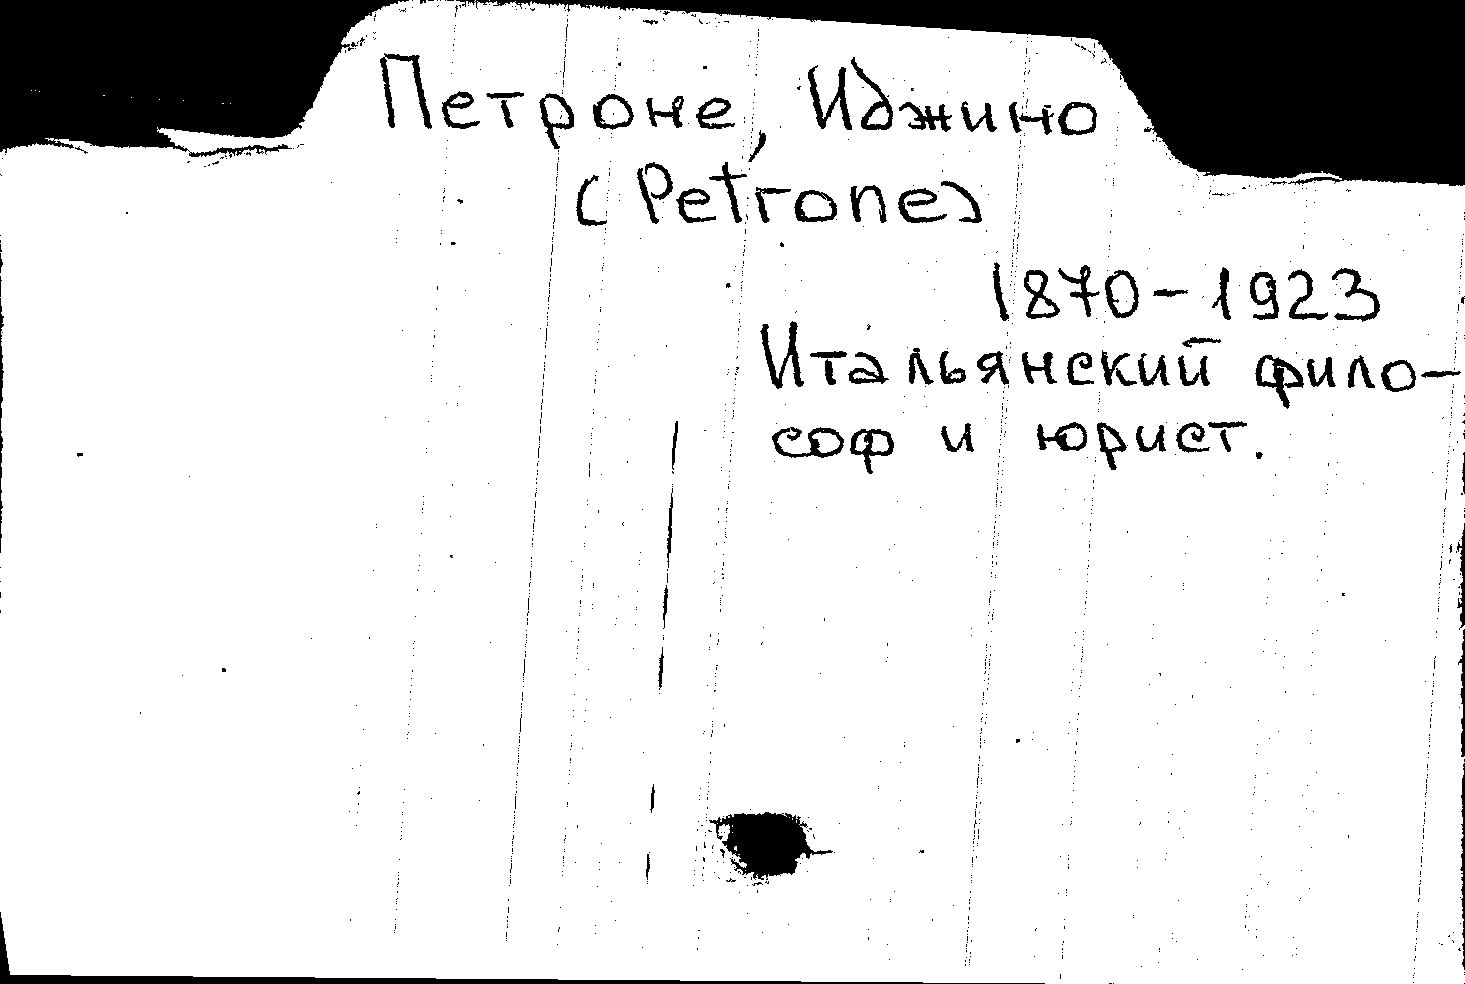 Петроне, Иджино
(Petrone)
1870-1923
Итальянский фило-
соф и юрист.